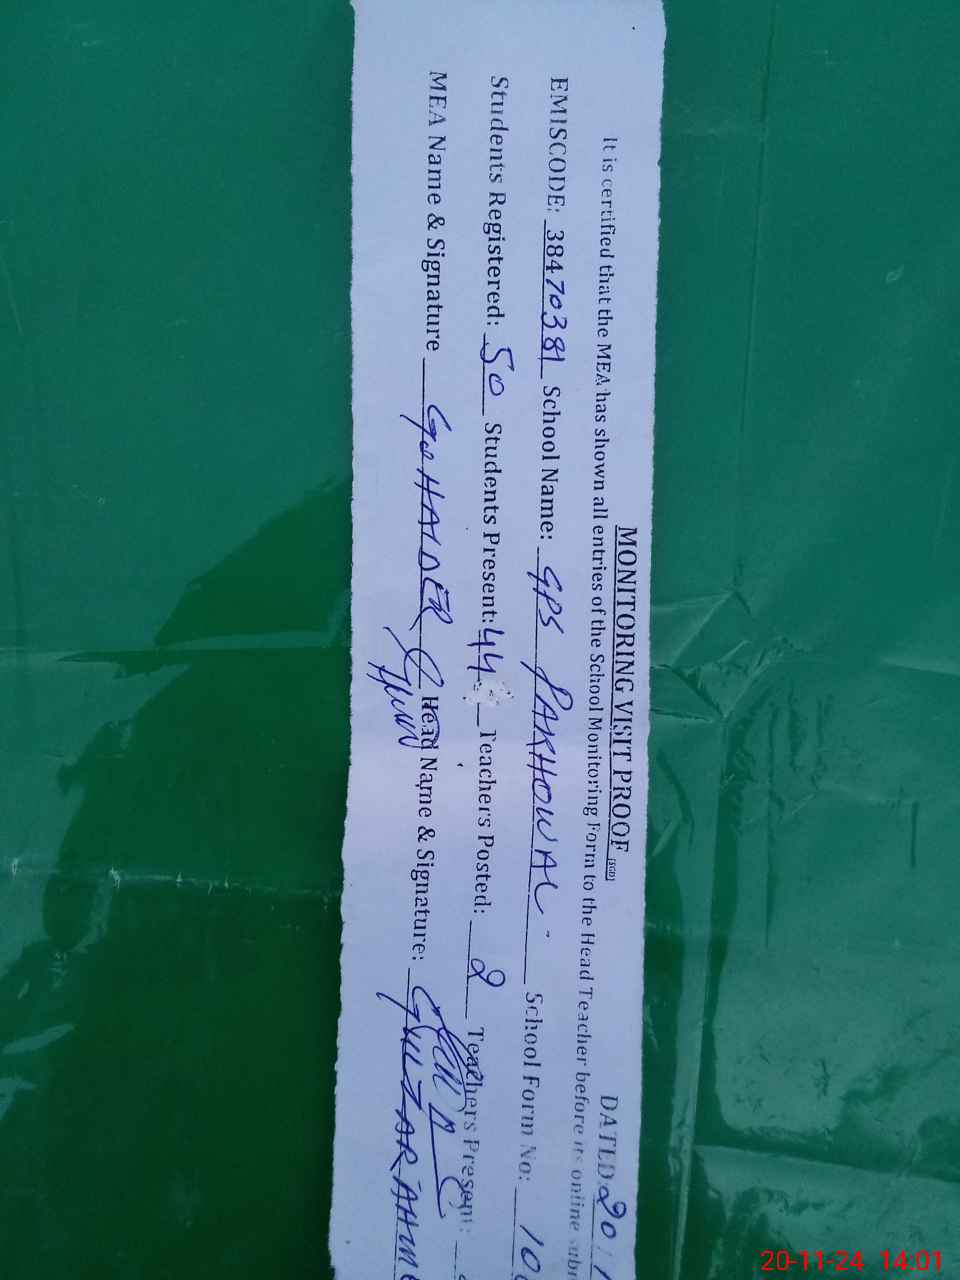 MONITORING VISIT PROOF (SGD) DATED: 20/1
It is certified that the MEA has shown all entries of the School Monitoring Form to the Head Teacher before its online subm
EMISCODE: 38470381 School Name: GPS PAKHOWAL School Form No: 10
Students Registered: 50 Students Present: 44 Teachers Posted: 2 Teachers Present:
MEA Name & Signature HAIDER Head Name & Signature: GULZAR AHM
20-11-24 14:01